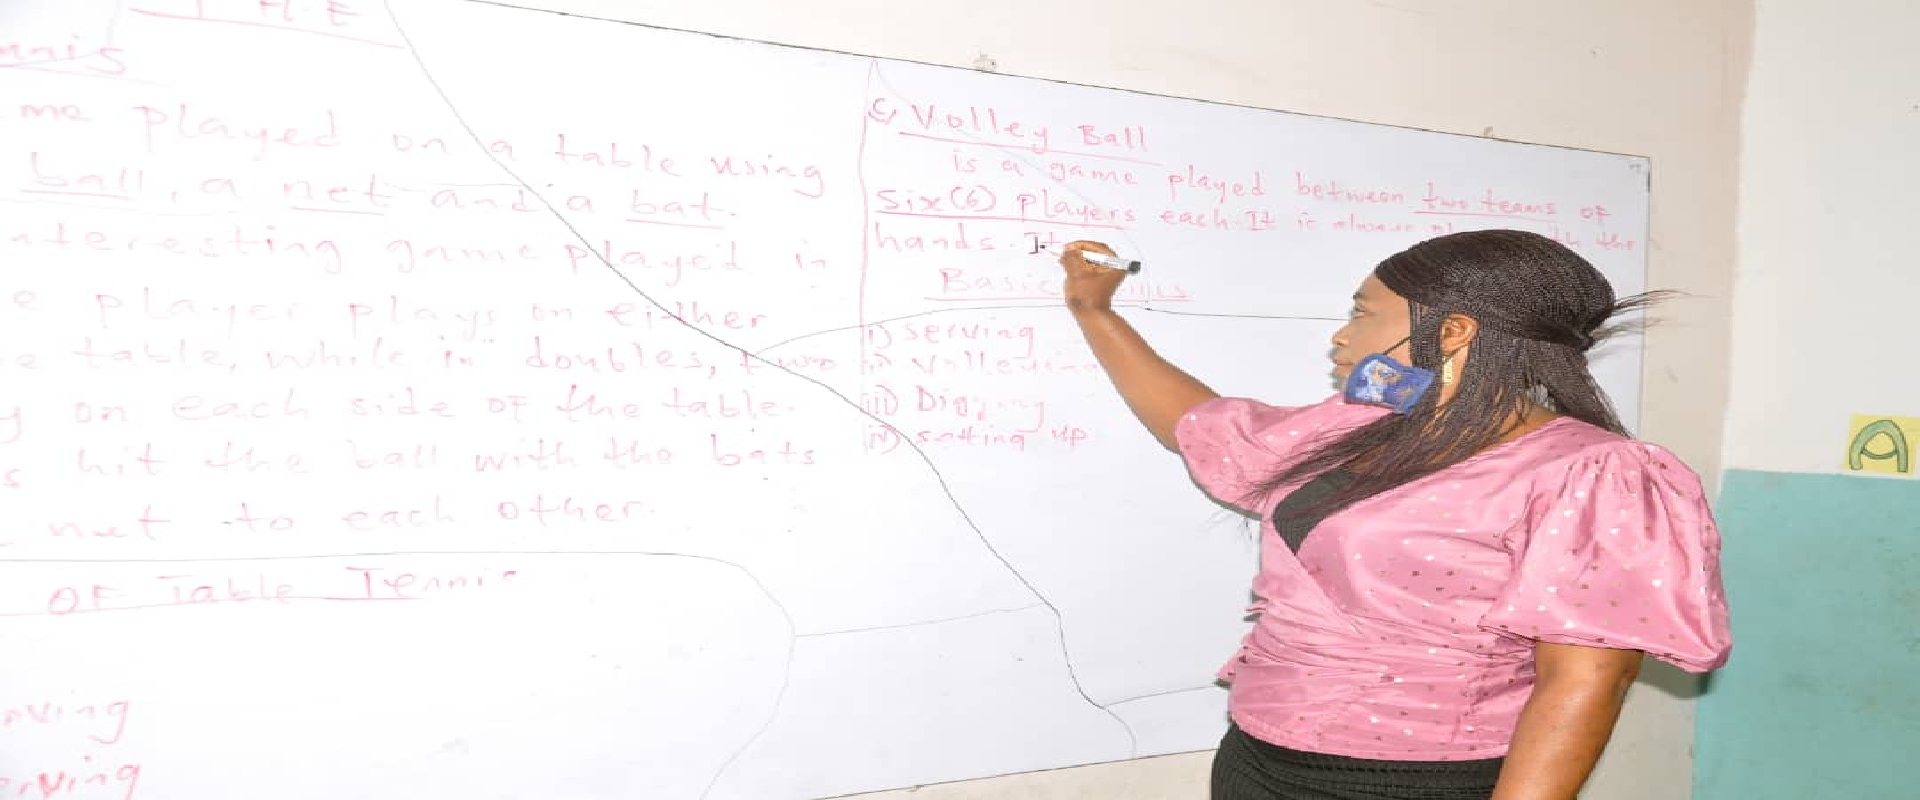 THE
nnis
me played on a table using
ball, a net and a bat.
nteresting game played in
e player plays on either
e table, while in doubles, two
y on each side of the table.
s hit the ball with the bats
net to each other.
OF Table Tennis
rving
rving
C, Volley Ball
is a game played between two teams of
Six (6) players each. It is always the
hands. It
Basic
i) Serving
ii) Volleying
iii) Digging
iv) setting up
A